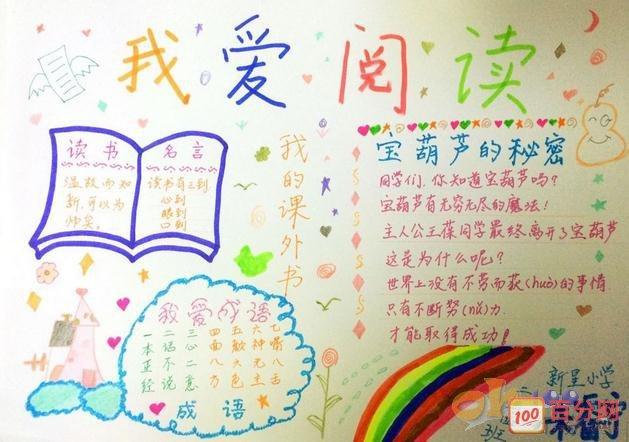 我爱阅读
读书
名言
温故而知
新,可以为
师矣。
读书有三到
心到
眼到
口到
我的课外书
宝葫芦的秘密
同学们,你知道宝葫芦吗?
宝葫芦有无穷无尽的魔法!
主人公王葆同学最终离开了宝葫芦
这是为什么呢?
世界上没有不劳而获(huò)的事情
只有不断努(nǔ)力
才能取得成功!
我爱成语
一二三四五六七
本话心面颜神嘴
正不二八六无八
经说意方色主舌
成语
新星小学
100
百分网